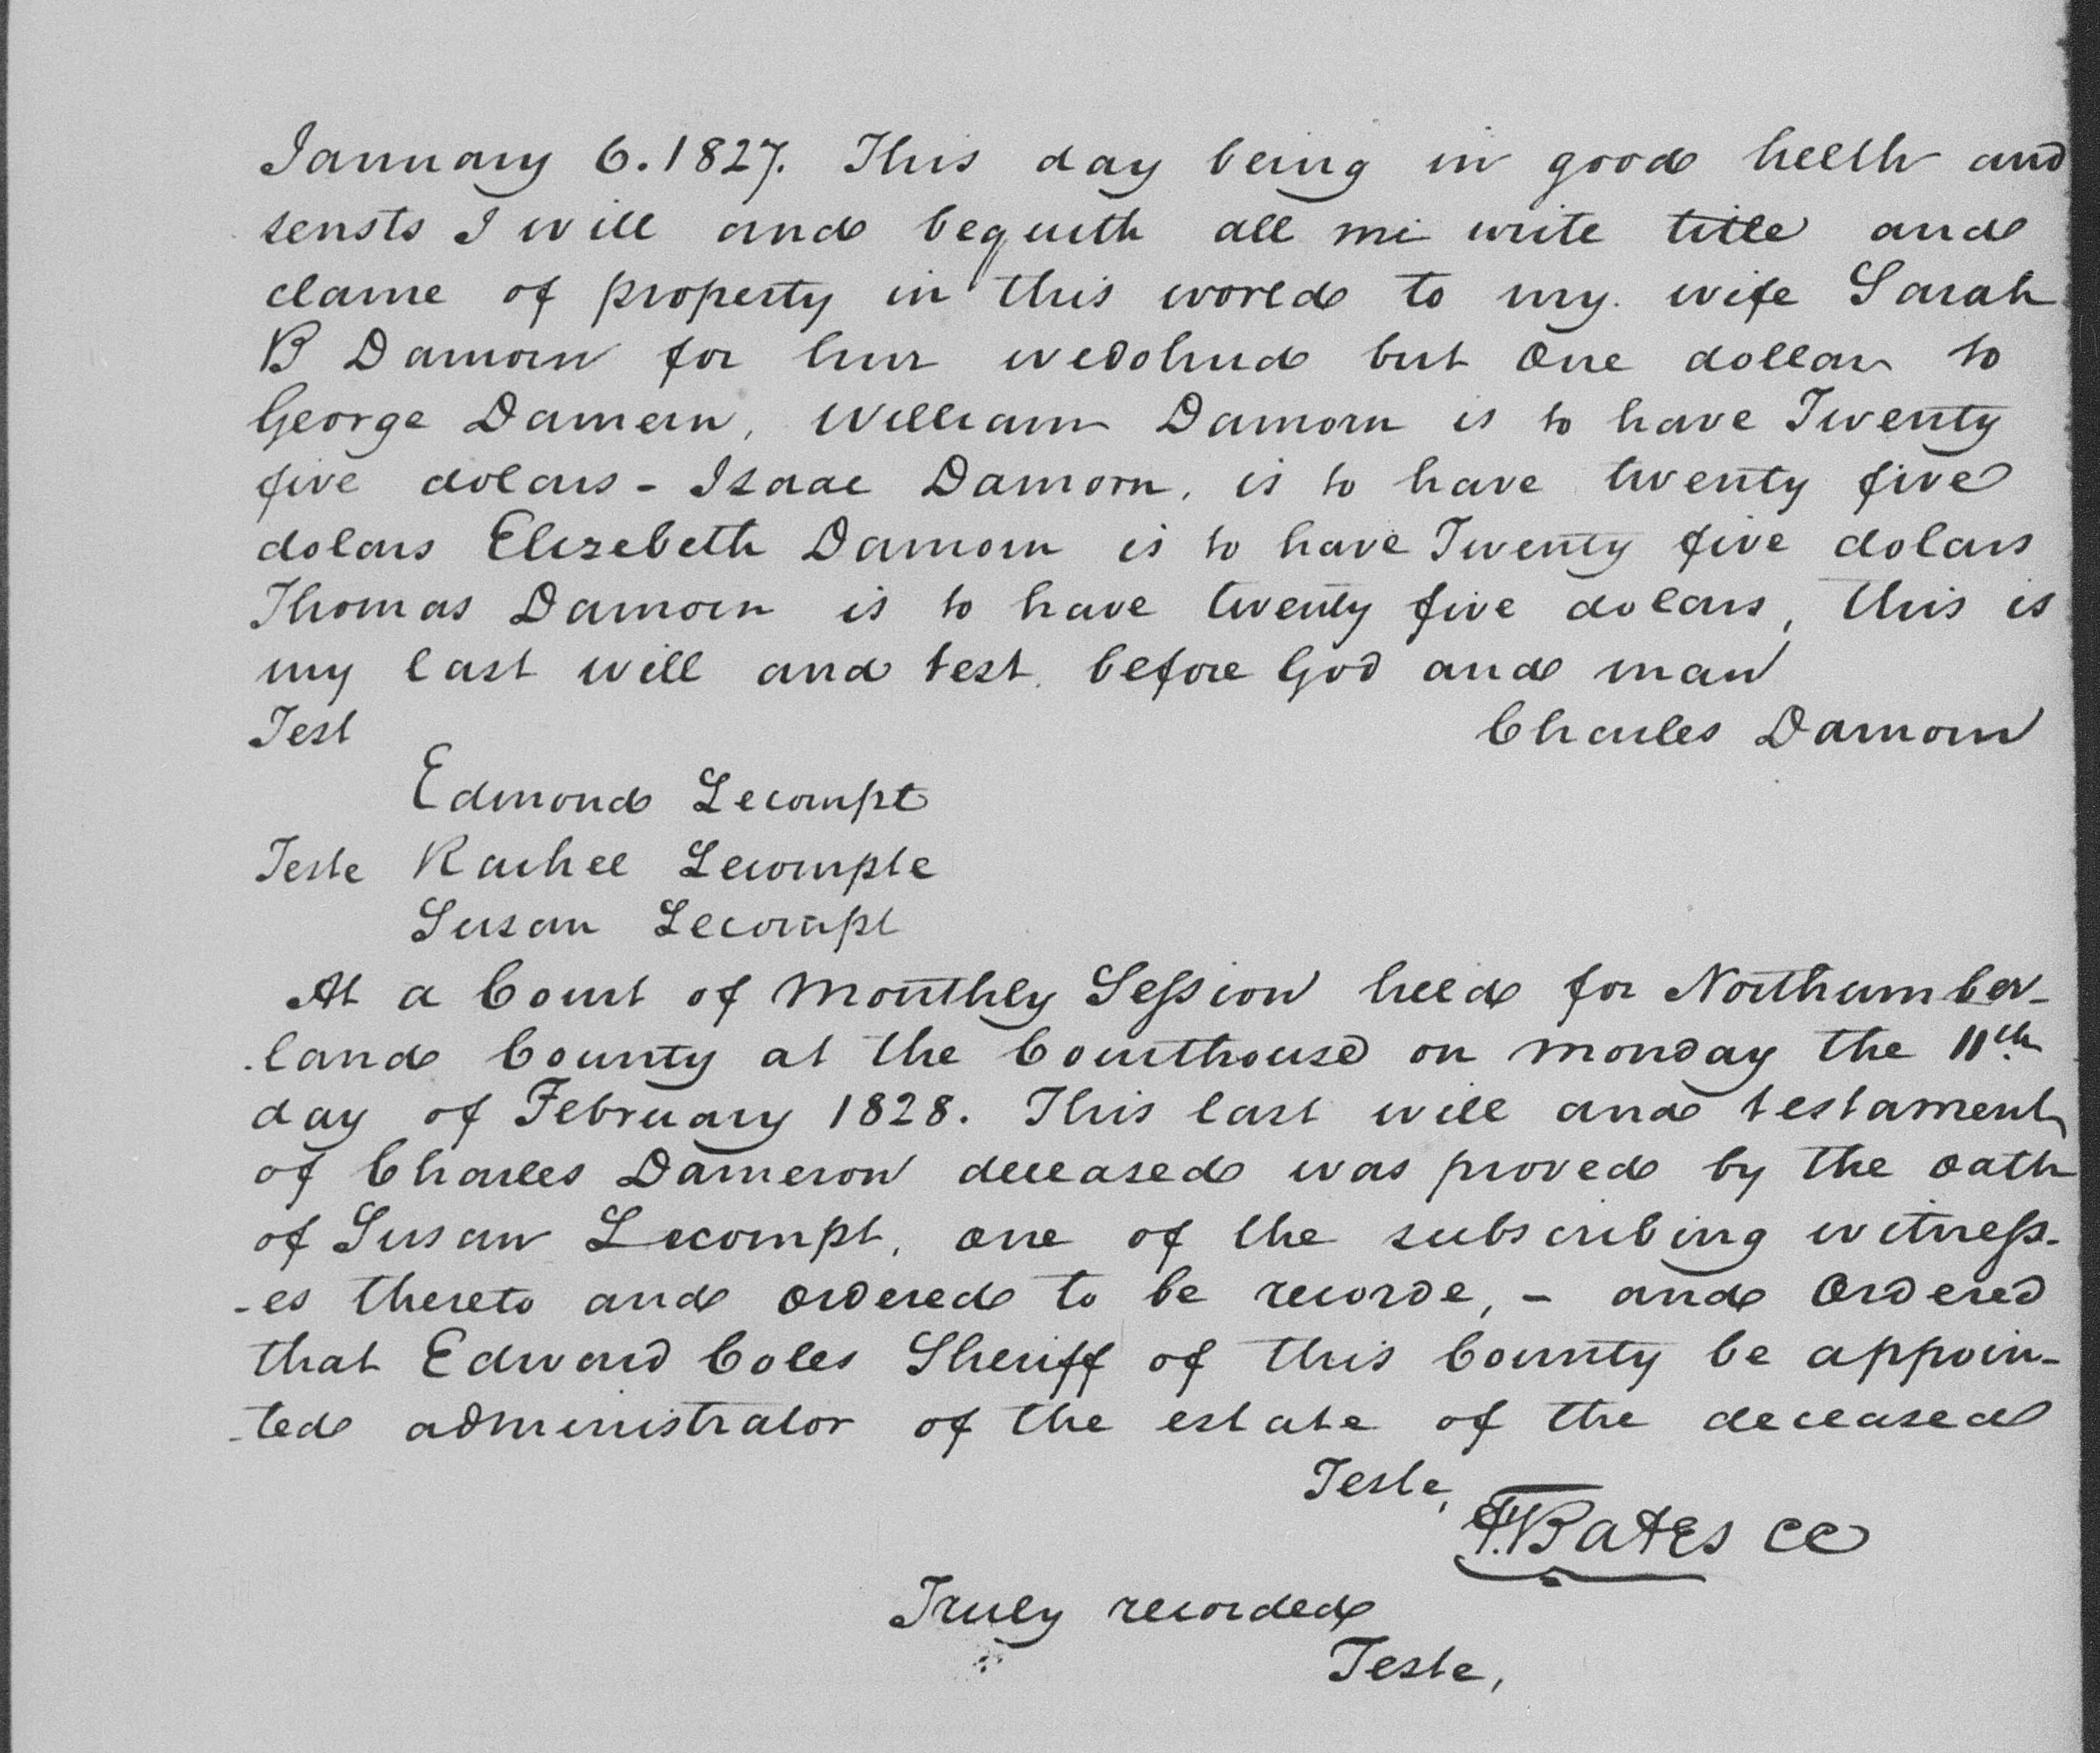 January 6. 1827. This day being in good helth and
sensts I will and bequith all mi write title and
clame of property in this world to my wife Sarah
B Damorn for hur wedohud but One dollar to
George Damern, William Damorn is to have Twenty
five dolars - Isaac Damorn, is to have twenty five
dolars Elizebeth Damorn is to have Twenty five dolars
Thomas Damorn is to have twenty five dolars, this is
my last will and test. before God and man
Test Charles Damorn
Edmond Lecompt
Teste Rachel Lecompte
Susan Lecompt
At a Court of Monthly Session held for Northumber-
-land County at the Courthouse on Monday the 11th
day of February 1828. This last will and testament
of Charles Dameron deceased was proved by the oath
of Susan Lecompt, one of the subscribing witness-
-es thereto and ordered to be recorde, - and Ordered
that Edward Coles Sheriff of this County be appoin-
-ted administrator of the estate of the deceased
Teste,
Bates CC
Truly recorded
Teste,